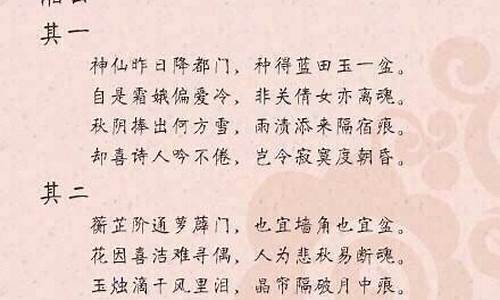 其一
神仙昨日降都门，种得蓝田玉一盆。
自是霜娥偏爱冷，非关倩女亦离魂。
秋阴捧出何方雪，雨渍添来隔宿痕。
却喜诗人吟不倦，岂令寂寞度朝昏。
其二
蘅芷阶通萝薜门，也宜墙角也宜盆。
花因喜洁难寻偶，人为悲秋易断魂。
玉烛滴干风里泪，晶帘隔破月中痕。